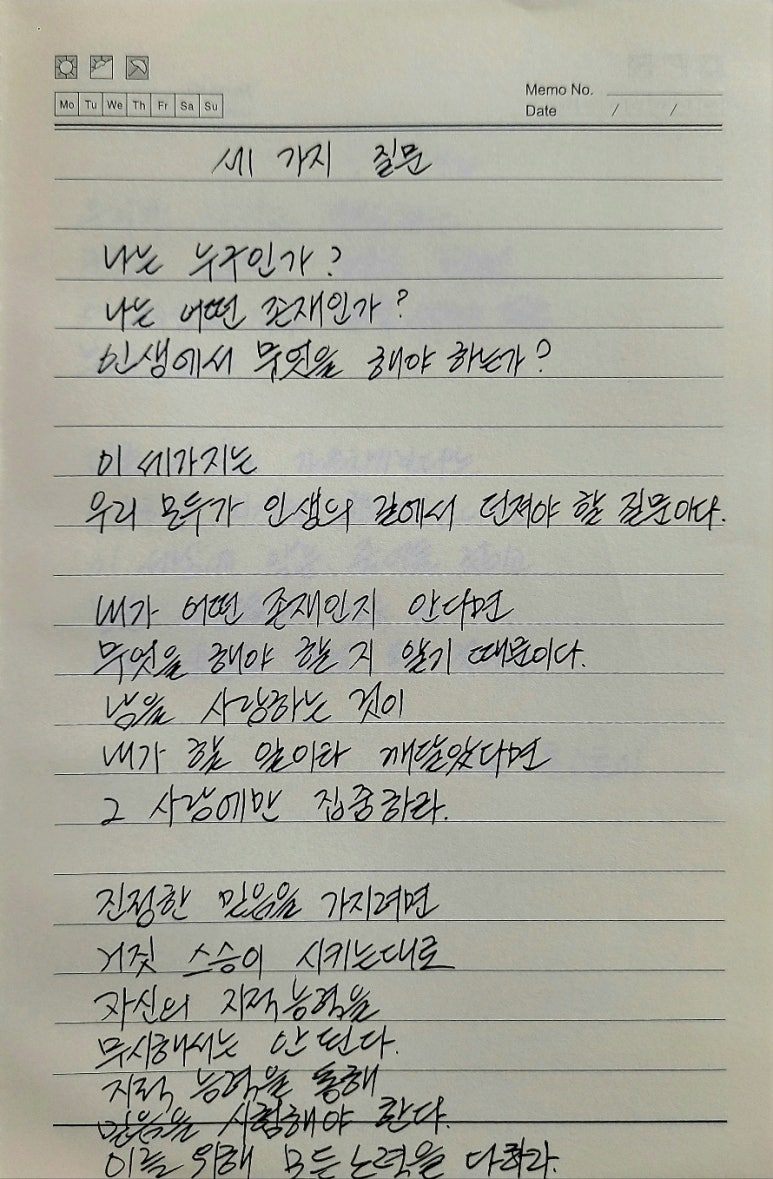 Mo Tu We Th Fr Sa Su
Memo No.
Date / /
세 가지 질문
나는 누구인가?
나는 어떤 존재인가?
인생에서 무엇을 해야 하는가?
이 세가지는
우리 모두가 인생의 길에서 던져야 할 질문이다.
내가 어떤 존재인지 안다면
무엇을 해야 할 지 알기 때문이다.
남을 사랑하는 것이
내가 할 일이라 깨달았다면
그 사랑에만 집중하라.
진정한 믿음을 가지려면
거짓 스승이 시키는대로
자신의 지적능력을
무시해서는 안 된다.
지적 능력을 통해
믿음을 시험해야 한다.
이를 위해 모든 노력을 다하라.